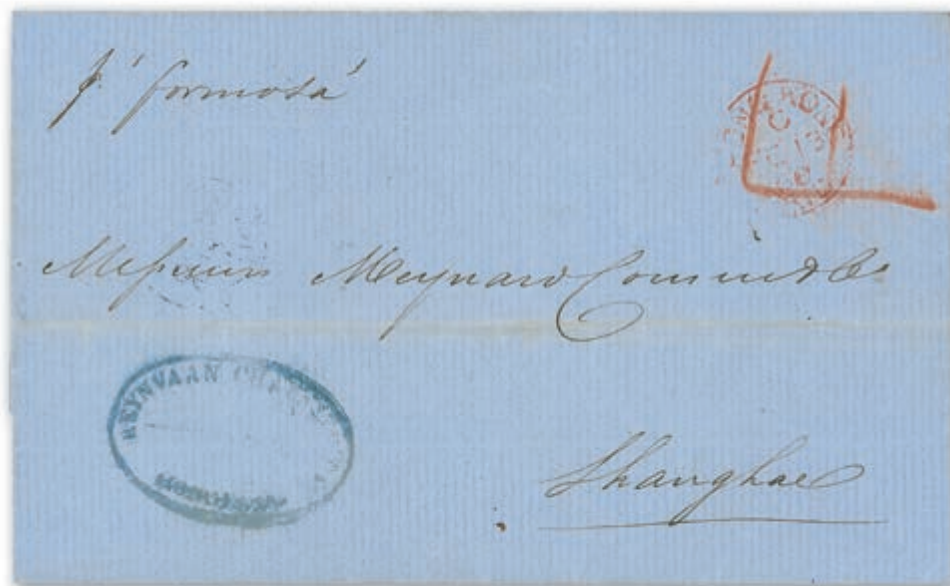 pr formosa
HONG KONG
C
Messieurs Meynard Cousin & Co
REYNVAAN
Shanghae